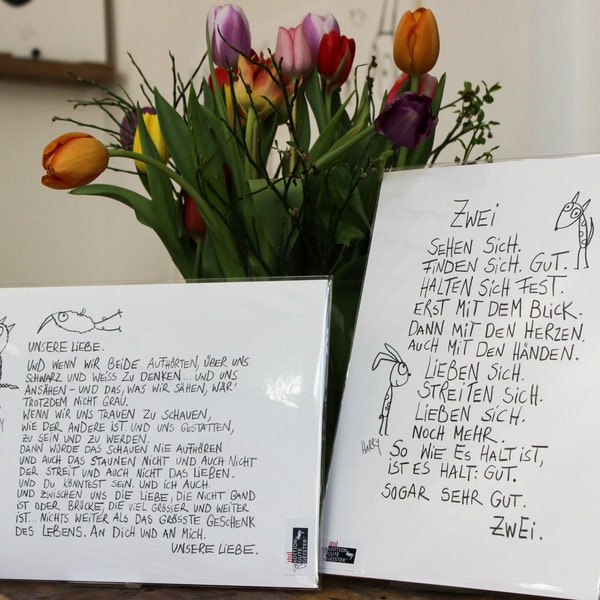 UNSERE LIEBE.
UND WENN WIR BEIDE AUFHÖRTEN, ÜBER UNS
SCHWARZ UND WEISS ZU DENKEN... UND UNS
ANSÄHEN - UND DAS, WAS WIR SÄHEN, WÄR'
TROTZDEM NICHT GRAU.
WENN WIR UNS TRAUEN ZU SCHAUEN,
WIE DER ANDERE IST. UND UNS GESTATTEN,
ZU SEIN UND ZU WERDEN.
DANN WÜRDE DAS SCHAUEN NIE AUFHÖREN
UND AUCH DAS STAUNEN NICHT UND AUCH NICHT
DER STREIT UND AUCH NICHT DAS LIEBEN.
UND DU KÖNNTEST SEIN. UND ICH AUCH.
UND ZWISCHEN UNS DIE LIEBE, DIE NICHT BAND
IST ODER BRÜCKE, DIE VIEL GRÖSSER UND WEITER
IST... NICHTS WEITER ALS DAS GRÖSSTE GESCHENK
DES LEBENS. AN DICH UND AN MICH.
UNSERE LIEBE.
EDITION
GUTE
GEISTER
ZWEI
SEHEN SICH.
FINDEN SICH. GUT.
HALTEN SICH FEST.
ERST MIT DEM BLICK.
DANN MIT DEN HERZEN.
AUCH MIT DEN HÄNDEN.
LIEBEN SICH.
STREITEN SICH.
LIEBEN SICH.
NOCH MEHR.
HARRY
SO WIE ES HALT IST,
IST ES HALT: GUT.
SOGAR SEHR GUT.
ZWEI.
EDITION
GUTE
GEISTER